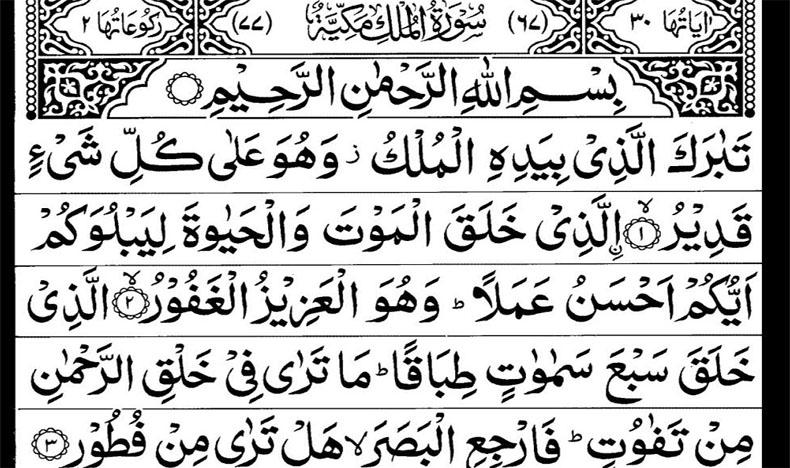 اٰيَاتُهَا ٣٠ (٦٧) سُوْرَةُ الْمُلْكِ مَكِّيَّةٌ (٧٧) رُكُوْعَاتُهَا ٢
بِسْمِ اللّٰهِ الرَّحْمٰنِ الرَّحِيْمِ
تَبٰرَكَ الَّذِیْ بِیَدِهِ الْمُلْكُ ز وَهُوَ عَلٰی كُلِّ شَیْءٍ
قَدِیْرُ ۙ﴿١﴾ اِ۟لَّذِیْ خَلَقَ الْمَوْتَ وَالْحَیٰوةَ لِیَبْلُوَكُمْ
اَیُّكُمْ اَحْسَنُ عَمَلًا ؕ وَهُوَ الْعَزِیْزُ الْغَفُوْرُ ۙ﴿٢﴾ الَّذِیْ
خَلَقَ سَبْعَ سَمٰوٰتٍ طِبَاقًا ؕ مَا تَرٰی فِیْ خَلْقِ الرَّحْمٰنِ
مِنْ تَفٰوُتٍ ؕ فَارْجِعِ الْبَصَرَ ۙ هَلْ تَرٰی مِنْ فُطُوْرٍ ﴿٣﴾